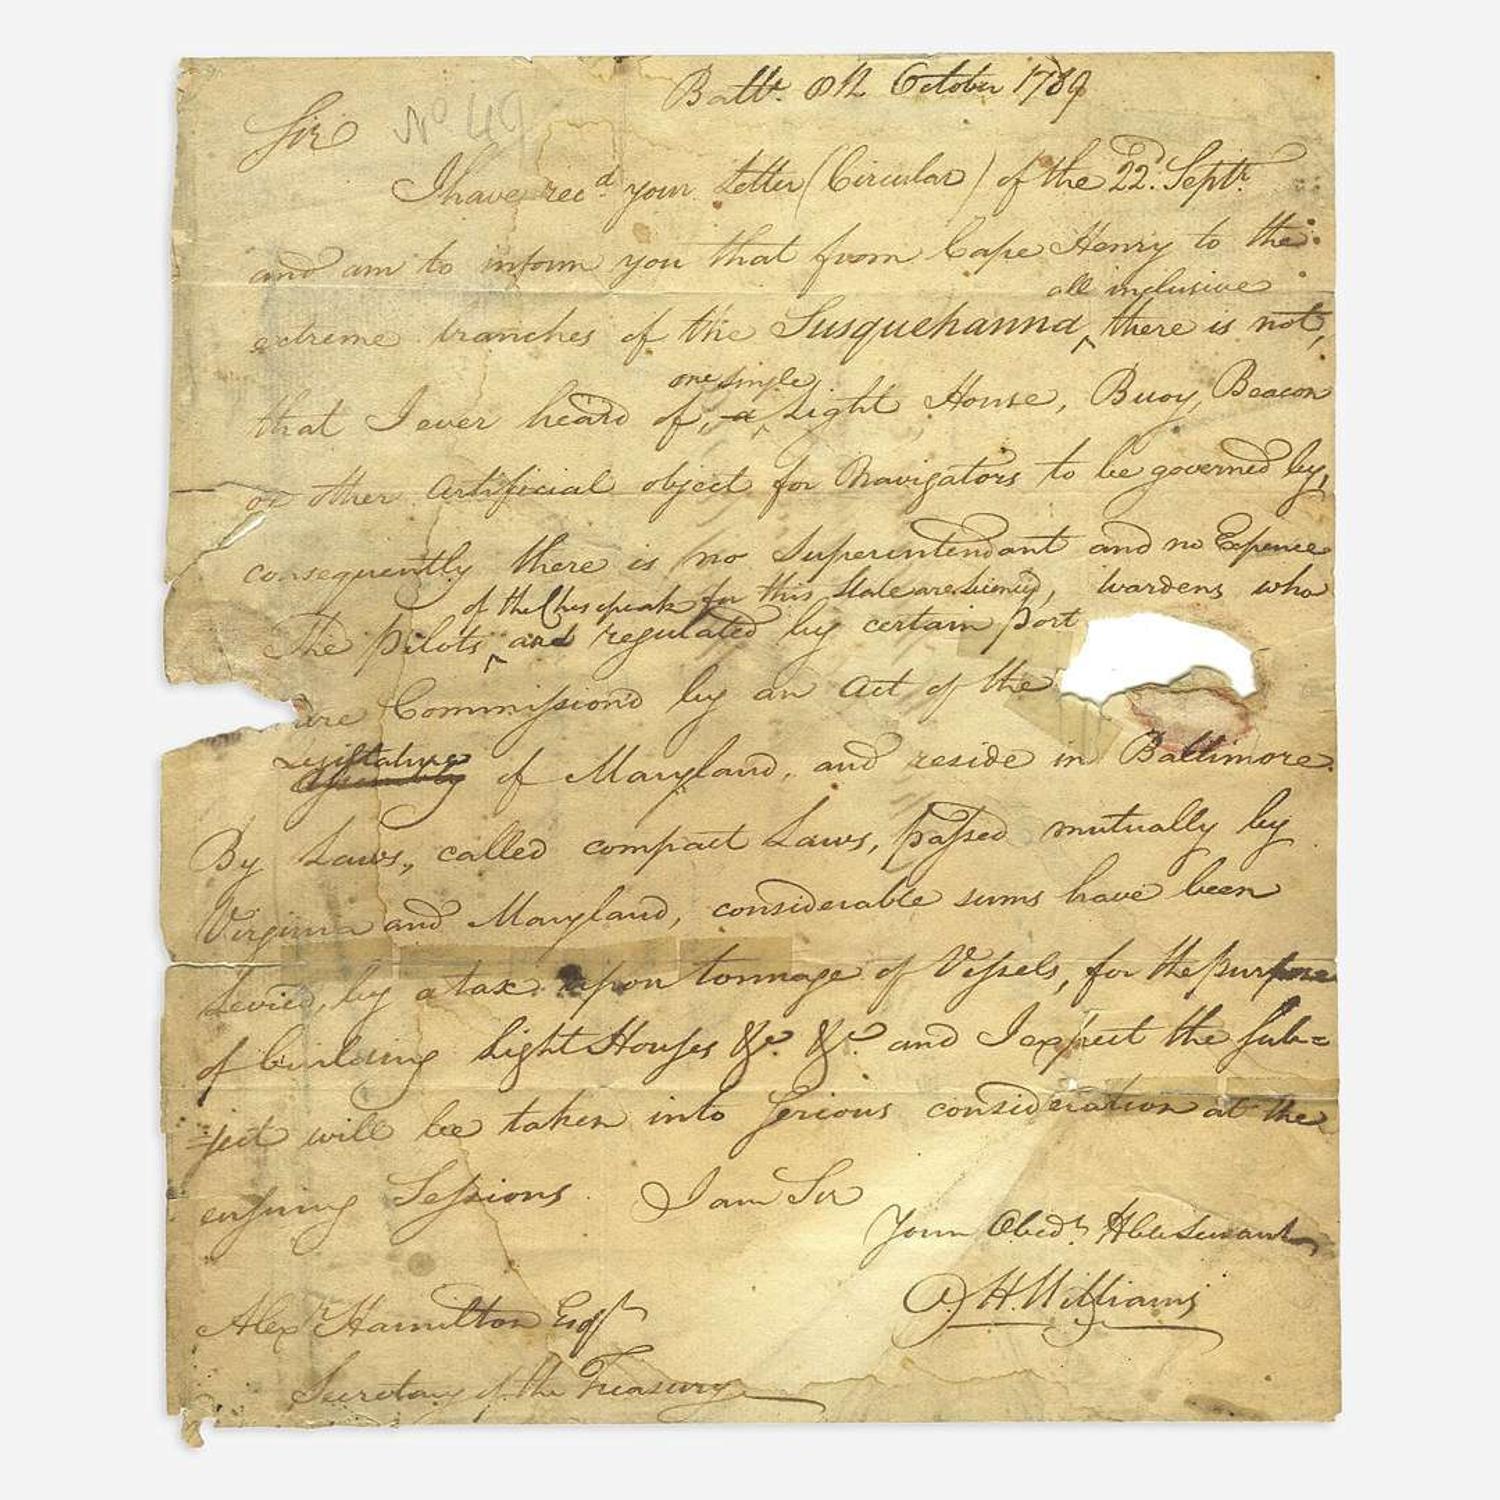 Balt:r 8th October 1789
Sir No 49
I have rec.d your Letter (Circular) of the 22.d Septr
and am to inform you that from Cape Henry to the
all inclusive
extreme branches of the Susquehanna, there is not,
one single
that I ever heard of, a Light House, Buoy, Beacon
or other Artificial object for Navigators to be governed by,
consequently there is no Superintendant and no Expence
of the Chesepeak for this State are licenced, wardens who
The Pilots and regulated by certain Port
are Commission'd by an Act of the
Legislature
Assembly of Maryland, and reside in Baltimore.
By Laws, called compact Laws, passed mutually by
Virginia and Maryland, considerable sums have been
Levied, by a tax upon tonnage of Vessels, for the purpose
of building Light Houses &c. &c. and I expect the sub=
=ject will be taken into serious consideration at the
ensuing Sessions. I am Sir
Your Obedt. Hble Servant
O. H. Williams
Alexr Hamilton Esqr
Secretary of the Treasury